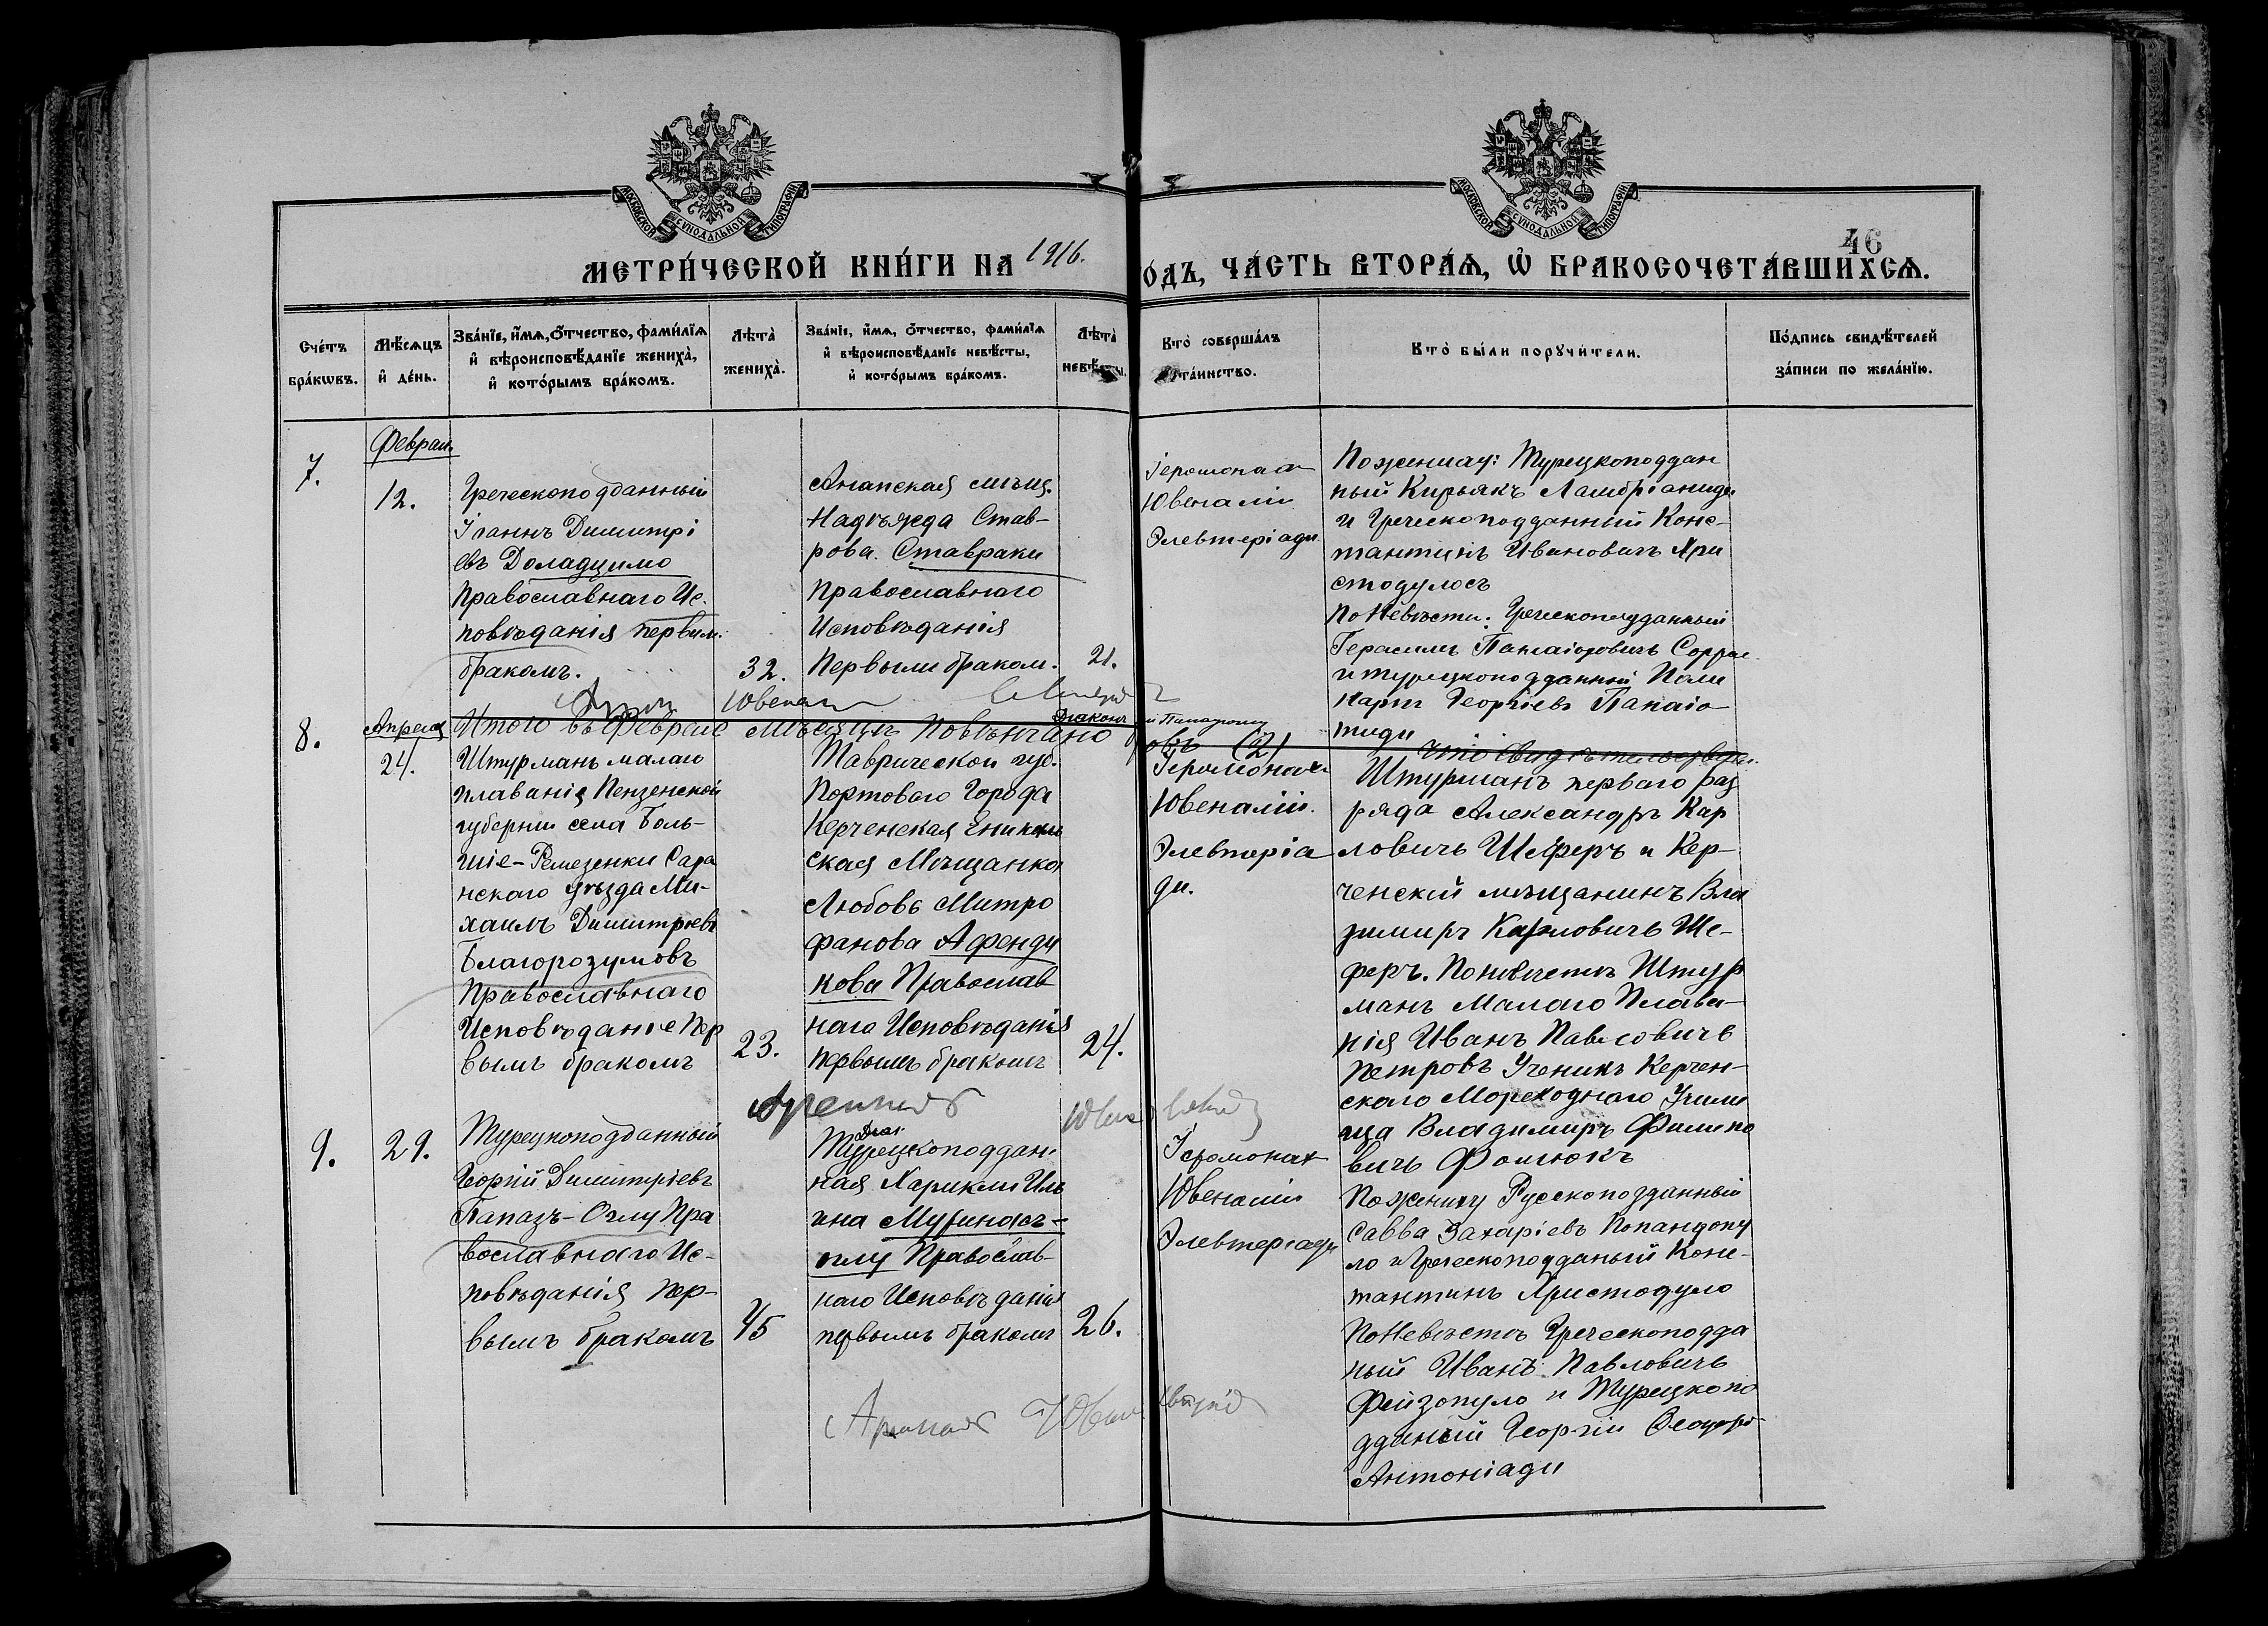 МОСКОВСКОЙ СѴНОДАЛЬНОЙ ТИПОГРАФІИ
МОСКОВСКОЙ СѴНОДАЛЬНОЙ ТИПОГРАФІИ
46
МЕТРИ́ЧЕСКОЙ КНИ́ГИ НА 1916.
О́ДЪ, ЧА́СТЬ ВТОРА́Ѧ, Ѡ҆ БРАКОСОЧЕТА́ВШИХСѦ.
Сче́тъ
бра́кѡвъ.
Мѣ́сѧцъ
и҆ де́нь.
Зва́нїе, и҆́мѧ, ѻ҆́тчество, фами́лїѧ
и҆ вѣроисповѣ́данїе жениха̀,
и҆ кото́рымъ бра́комъ.
Лѣта̀
жениха̀.
Зва́нїе, и҆́мѧ, ѻ҆́тчество, фами́лїѧ
и҆ вѣроисповѣ́данїе невѣ́сты,
и҆ кото́рымъ бра́комъ.
Лѣта̀
невѣ́сты.
Кто̀ соверша́лъ
та́инство.
Кто̀ бы́ли порꙋчи́тели.
По́дпись свидѣ́телей
за́писи по жела́нїю.
7.
Феврал.
12.
Греческоподданный
Іоаннъ Димитрі
евъ Доладцимо
Православнаго Ис.
повѣданія первым.
бракомъ.
32.
Анапская мѣщ.
Надѣжда Став-
рова. Ставраки
Православнаго
Исповѣданія
Первыли браком.
21.
Іеромонах
Ювеналій
Элевтеріади
По жениху: Турецкоподдан
ный Кирьякъ Ламбріаниди
и Греческоподданный Конс-
тантинъ Ивановичъ Хри
стодулосъ
По Невѣсти: Греческоподданный
Герасимъ Панаіотовичъ
и турецкоподданный Поли
карпъ Георгіевъ Панаіо
тиди
Итого въ Феврале мѣсяцъ повѣнчано
овъ (2)
что свидѣтельствуем.
8.
Апреля
24.
Штурманъ малаго
плаванія Пензенской
губерніи села Боль-
шіе-Ремезенки Сара
нскаго уѣзда Ми-
хаилъ Димитріевъ
Благорозумовъ
Православнаго
Исповѣданіе Пер
вымъ бракомъ
23.
Таврической губ.
Портоваго Города
Керченская Еникаль
ская Мѣщанка
Любовь Митро
фанова Афенди
кова Православ
наго Исповѣданія
первымъ бракомъ
24.
Іеромонах
Ювеналій.
Элевтеріа
ди.
Штурманъ перваго раз
ряда Александръ Кар
ловичъ Шеферъ и Кер-
ченскій мѣщанинъ Вла
димиръ Карловичъ Ше-
феръ. По невѣстѣ Штур
манъ Малаго Плава-
нія Иванъ Павловичъ
Петровъ Ученикъ Керчен-
скаго Мореходнаго Учили
ща Владимиръ Филипо
вичъ Фомюкъ
9.
29.
Турецкоподданный
Георгій Димитріевъ
Папазъ-Оглу Пра
вославнаго Ис-
повѣданія пер-
вымъ бракомъ
45
Турецкоподдан.
ная Хариклі Иль
ина Муфиназъ-
оглу Православ-
наго Исповѣданія
первымъ бракомъ
26.
Іеромонах
Ювеналій
Элевтеріади
По жениху Русскоподданный
Савва Захаріевъ Попандопу
ло и Греческоподданый Конс-
тантинъ Христодуло
По Невѣстѣ Греческоподда
ный Иванъ Павловичъ
Фейзопуло и Турецкопо
дданый Георгій Ѳеодоро
Антоніади